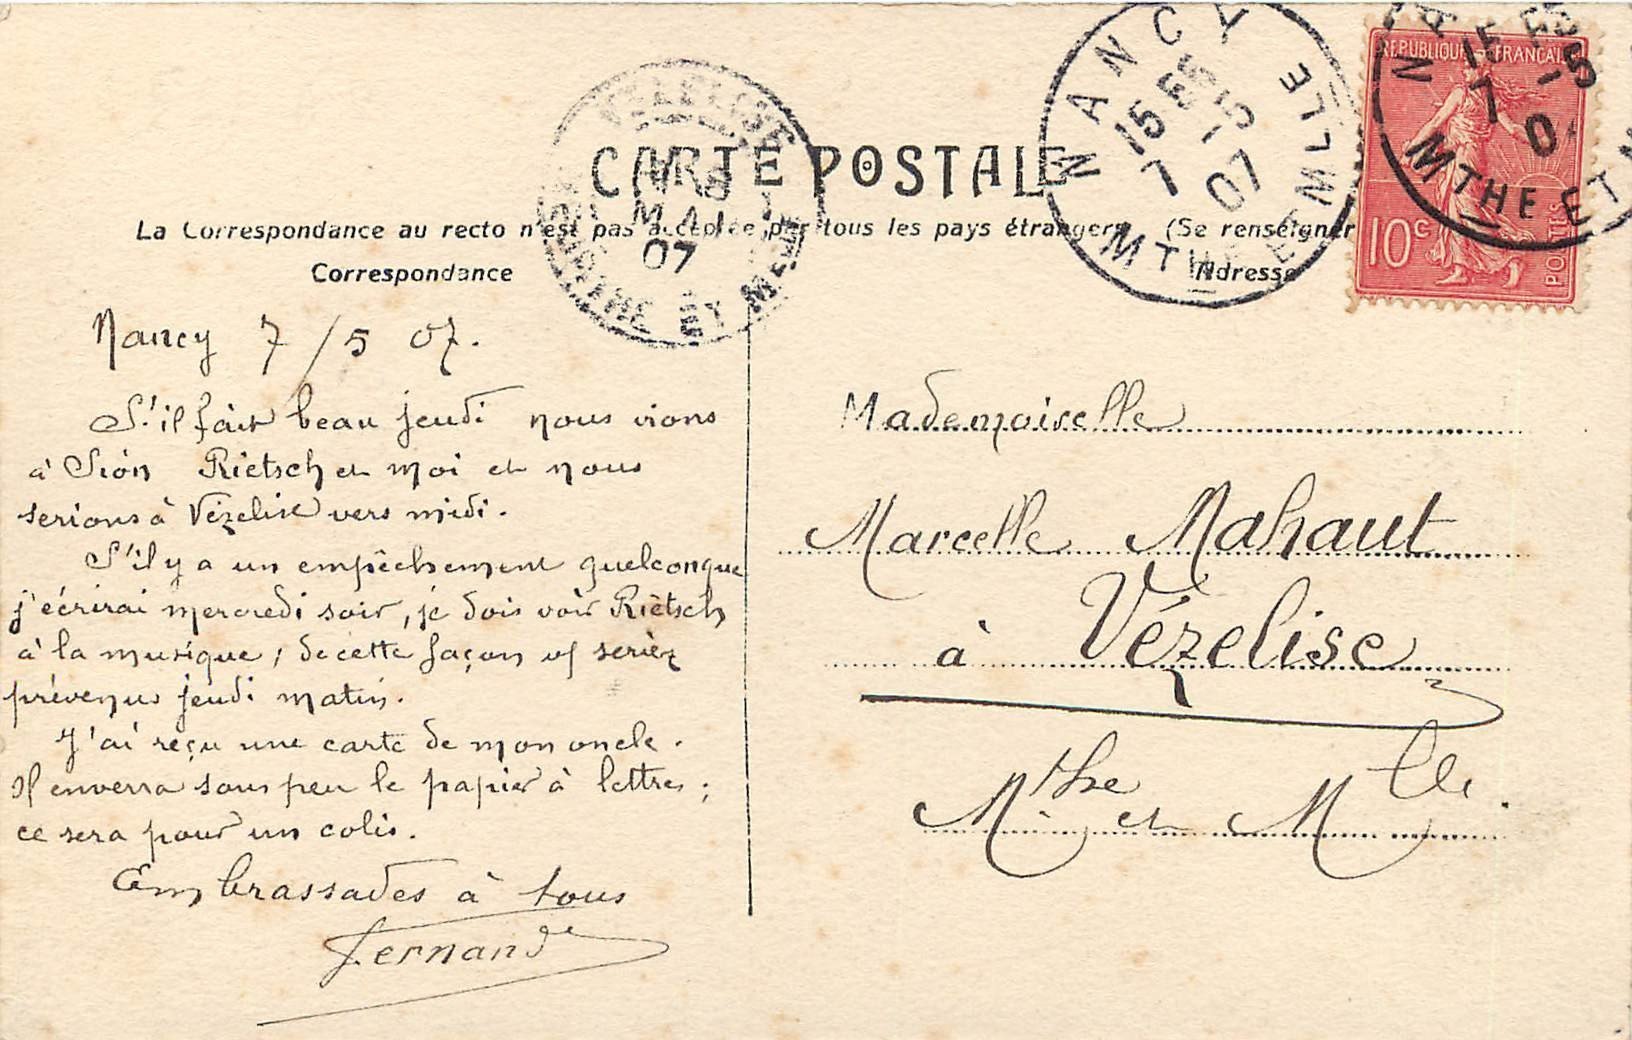 CARTE POSTALE
La Correspondance au recto n'est pas acceptée par tous les pays étrangers (Se renseigner
Correspondance
Adresse
NANCY
15 E
7 - 5
07
MTHE ET MLLE
REPUBLIQUE FRANCAISE
10c
POSTES
VEZELISE
MAI
07
MEURTHE ET MLLE
Nancy 7/5 07.
S'il fait beau jeudi nous irons
à Sion Rietsch et moi et nous
serions à Vézelise vers midi.
S'il y a un empêchement quelconque
j'écrirai mercredi soir, je dois voir Rietsch
à la musique ; de cette façon vs seriez
prévenus jeudi matin.
J'ai reçu une carte de mon oncle.
Il enverra sous peu le papier à lettres ;
ce sera pour un colis.
Embrassades à tous
Fernand
Mademoiselle
Marcelle Mahaut
à Vézelise
Mthe et Mlle.